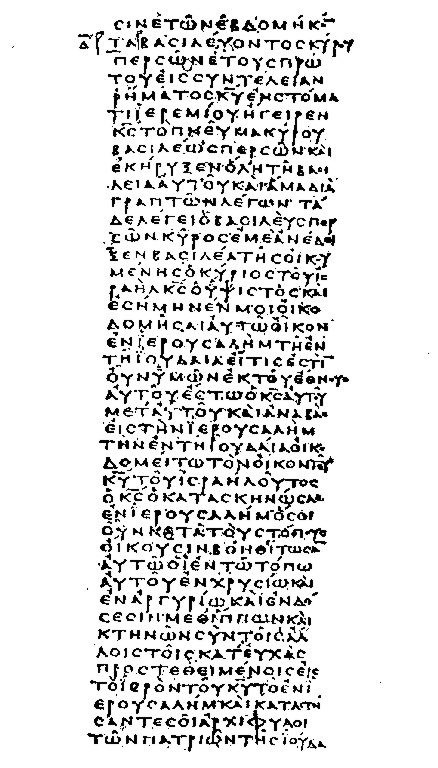 ϹΙΝΕΤΩΝΕΒΔΟΜΗΚΟ̅
ΤΑΒΑϹΙΛΕΥΟΝΤΟϹΚΥΡΟΥ
ΠΕΡϹΩΝΕΤΟΥϹΠΡΩ
ΤΟΥΕΙϹϹΥΝΤΕΛΕΙΑΝ
ΡΗΜΑΤΟϹΚ̅Υ̅ΕΝϹΤΟΜΑ
ΤΙΙΕΡΕΜΙΟΥΗΓΕΙΡΕΝ
Κ̅Ϲ̅ΤΟΠΝΕΥΜΑΚΥΡΟΥ
ΒΑϹΙΛΕΩϹΠΕΡϹΩΝΚΑΙ
ΕΚΗΡΥΞΕΝΟΛΗΤΗΒΑϹΙ
ΛΕΙΑΑΥΤΟΥΚΑΙΑΜΑΔΙΑ
ΓΡΑΠΤΩΝΛΕΓΩΝ ΤΑ
ΔΕΛΕΓΕΙΟΒΑϹΙΛΕΥϹΠΕΡ
ϹΩΝΚΥΡΟϹΕΜΕΑΝΕΔΕΙ
ΞΕΝΒΑϹΙΛΕΑΤΗϹΟΙΚΟΥ
ΜΕΝΗϹΟΚΥΡΙΟϹΤΟΥΙϹ
ΡΑΗΛΚ̅Ϲ̅ΟΥΨΙϹΤΟϹΚΑΙ
ΕϹΗΜΗΝΕΝΜΟΙΟΙΚΟ
ΔΟΜΗϹΑΙΑΥΤΩΟΙΚΟΝ
ΕΝΙΕΡΟΥϹΑΛΗΜΤΗΕΝ
ΤΗΙΟΥΔΑΙΑΕΙΤΙϹΕϹΤΙ̅
ΟΥΝΥΜΩΝΕΚΤΟΥΕΘΝΟΥϹ
ΑΥΤΟΥΕϹΤΩΟΚ̅Ϲ̅ΑΥΤΟΥ
ΜΕΤΑΥΤΟΥΚΑΙΑΝΑΒΑϹ
ΕΙϹΤΗΝΙΕΡΟΥϹΑΛΗΜ
ΤΗΝΕΝΤΗΙΟΥΔΑΙΑΟΙΚΟ
ΔΟΜΕΙΤΩΤΟΝΟΙΚΟΝΤΟΥ
Κ̅Υ̅ΤΟΥΙϹΡΑΗΛΟΥΤΟϹ
ΟΚ̅Ϲ̅ΟΚΑΤΑϹΚΗΝΩϹΑϹ
ΕΝΙΕΡΟΥϹΑΛΗΜΟϹΟΙ
ΟΥΝΚΑΤΑΤΟΥϹΤΟΠΟΥϹ
ΟΙΚΟΥϹΙΝΒΟΗΘΕΙΤΩϹΑ̅
ΑΥΤΩΟΙΕΝΤΩΤΟΠΩ
ΑΥΤΟΥΕΝΧΡΥϹΙΩΚΑΙ
ΕΝΑΡΓΥΡΙΩΚΑΙΕΝΔΟ
ϹΕϹΙΝΜΕΘΙΠΠΩΝΚΑΙ
ΚΤΗΝΩΝϹΥΝΤΟΙϹΑΛ
ΛΟΙϹΤΟΙϹΚΑΤΕΥΧΑϹ
ΠΡΟϹΤΕΘΕΙΜΕΝΟΙϹΕΙϹ
ΤΟΙΕΡΟΝΤΟΥΚ̅Υ̅ΤΟΕΝΙ
ΕΡΟΥϹΑΛΗΜΚΑΙΚΑΤΑϹΤΗ
ϹΑΝΤΕϹΟΙΑΡΧΙΦΥΛΟΙ
ΤΩΝΠΑΤΡΙΩΝΤΗϹΙΟΥΔΑ